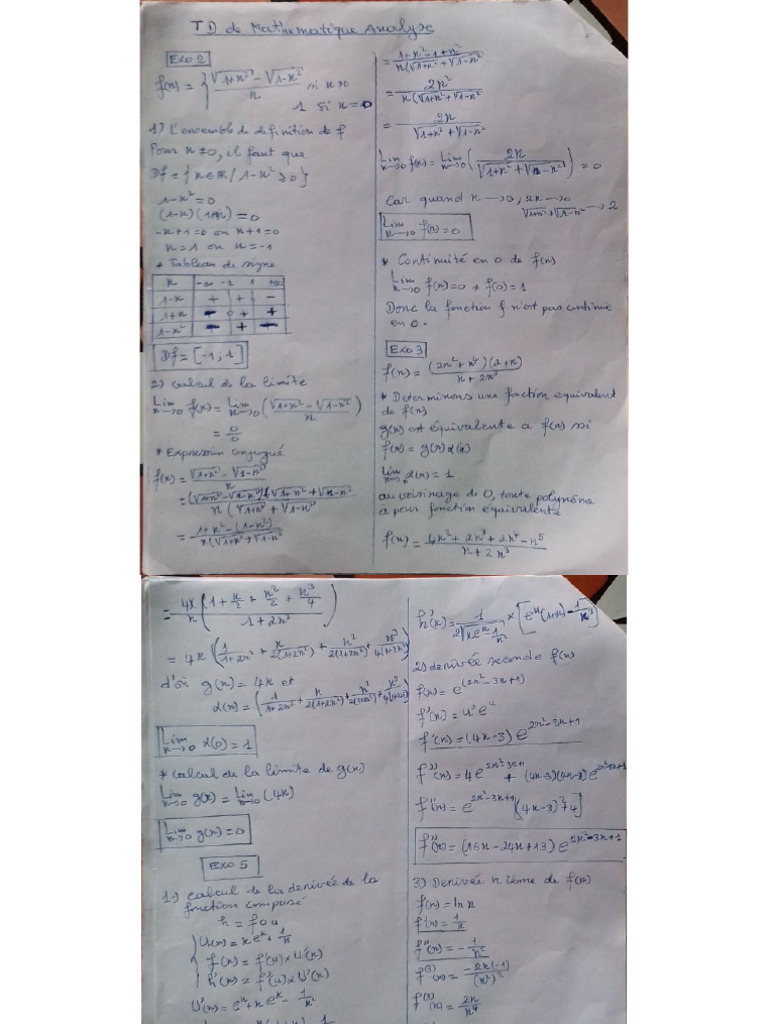 TD de Mathematique Analyse
Exo 2
f(x) = { √1+x² - √1-x² / x si x≠0
1 si x=0
1) L'ensemble de definition de f
Pour x≠0, il faut que
Df = {x∈ℝ / 1-x² ≥0}
1-x²=0
(1-x)(1+x)=0
-x+1=0 ou x+1=0
x=1 ou x=-1
* Tableau de signe
x -∞ -1 1 +∞
1-x + + -
1+x - 0 + +
1-x² - + -
Df = [-1; 1]
2) Calcul de la limite
Lim x→0 f(x) = Lim x→0 (√1+x² - √1-x² / x)
= 0/0
* Expression conjugué
f(x) = √1+x² - √1-x² / x
= (√1+x² - √1-x²)(√1+x² + √1-x² / x(√1+x² + √1-x²)
= 1+x² - (1-x²) / x(√1+x² + √1-x²
= 1+x² - 1+x² / x(√1+x² + √1-x²
= 2x² / x(√1+x² + √1-x²
= 2x / √1+x² + √1-x²
Lim x→0 f(x) = Lim x→0 (2x / √1+x² + √1-x²) = 0
Car quand x→0, 2x→0
√1+x² + √1-x² → 2
Lim x→0 f(x)=0
* Continuité en 0 de f(x)
Lim x→0 f(x)=0 ≠ f(0)=1
Donc la fonction f n'est pas continue
en 0.
Exo 3
f(x) = (2x²+x⁴)(2+x) / x+2x³
* Determinons une fonction equivalent
de f(x)
g(x) est équivalente a f(x) si
f(x) = g(x) α(x)
lim x→0 α(x) = 1
au voisinage de 0, toute polynôme
à pour fonction équivalente
f(x) = 4x²+2x³+2x⁴-x⁵ / x+2x³
= 4x/x (1 + x/2 + x²/2 + x³/4 / 1+2x²)
= 4x (1/1+2x² + x/2(1+2x²) + x²/2(1+2x²) + x³/4(1+2x²)
d'où g(x) = 4x et
α(x) = (1/1+2x² + x/2(1+2x²) + x²/2(1+2x²) + x³/4(1+2x²)
Lim x→0 α(0) = 1
* Calcul de la limite de g(x)
Lim x→0 g(x) = Lim x→0 (4x)
Lim x→0 g(x) = 0
Exo 5
1-) Calcul de la derivée de la
fonction composé
h = f∘u
U(x) = xeˣ + 1/x
f(x) = f'(u)×U'(x)
h'(x) = f'(u)×U'(x)
U'(x) = eˣ + xeˣ - 1/x²
h'(x) = 1 / 2√xeˣ-1/x² × [eˣ(1+x) - 1/x²]
2) derivée seconde f(x)
f(x) = e^(2x²-3x+1)
f'(x) = u'eᵘ
f'(x) = (4x-3) e^2x²-3x+1
f''(x) = 4e^2x²-3x+1 + (4x-3)(4x-3)e^2x²-3x+1
f''(x) = e^2x²-3x+1 [(4x-3)²+4]
f''(x) = (16x-24x+13) e^2x²-3x+1
3) Derivée n ième de f(x)
f(x) = ln x
f'(x) = 1/x
f''(x) = -1/x²
f⁽³⁾(x) = -2x(-1) / (x²)²
f⁽³⁾(x) = 2x/x⁴